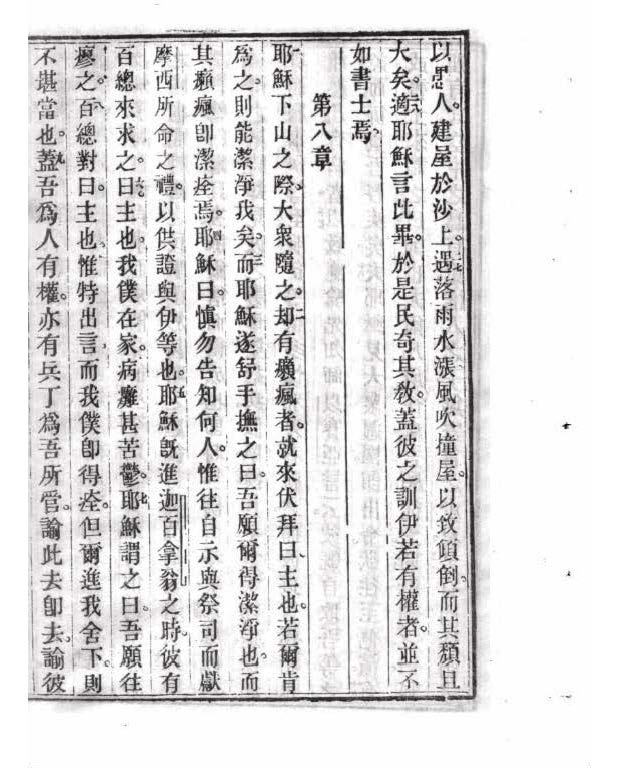 以愚人建屋於沙上。遇落雨水漲風吹撞屋。以致傾倒。而其頹且
大矣。適耶穌言此畢。於是民奇其教。蓋彼之訓伊若有權者。並不
如書士焉。
第八章
耶穌下山之際。大衆隨之。二却有癩瘋者。就來伏拜曰、主也。若爾肯
爲之則能潔淨我矣。三而耶穌遂舒手撫之曰。吾願爾得潔淨也。而
其癩瘋卽潔痊焉。四耶穌曰。愼勿告知何人。惟往自示與祭司而獻
摩西所命之禮。以供證與伊等也。五耶穌旣進迦百拿翁之時。彼有
百總來求之。六曰主也。我僕在家。病癱甚苦鬱。七耶穌謂之曰。吾願往
瘳之。八百總對曰。主也。惟特出言而我僕卽得痊。但爾進我舍下。則
不堪當也。九蓋吾爲人有權。亦有兵丁爲吾所管。諭此去卽去。諭彼